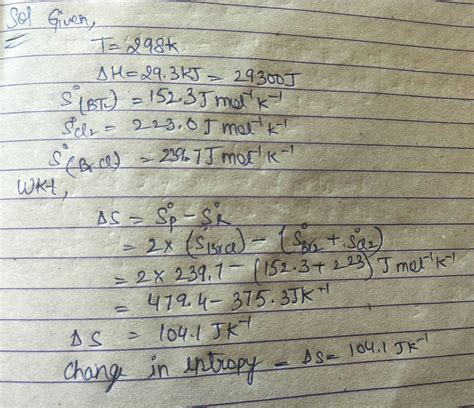 Sol Given,
T = 298K
ΔH = 29.3KJ = 29300J
S°(Br₂) = 152.3 J mol⁻¹ K⁻¹
S°Cl₂ = 223.0 J mol⁻¹ K⁻¹
S°(BrCl) = 239.7 J mol⁻¹ K⁻¹
WKT,
ΔS = S°P - S°R
= 2 × (S°BrCl) - (S°Br2 + S°Cl2)
= 2 × 239.7 - (152.3 + 223) J mol⁻¹ K⁻¹
= 479.4 - 375.3 JK⁻¹
ΔS = 104.1 JK⁻¹
Change in entropy = ΔS = 104.1 JK⁻¹